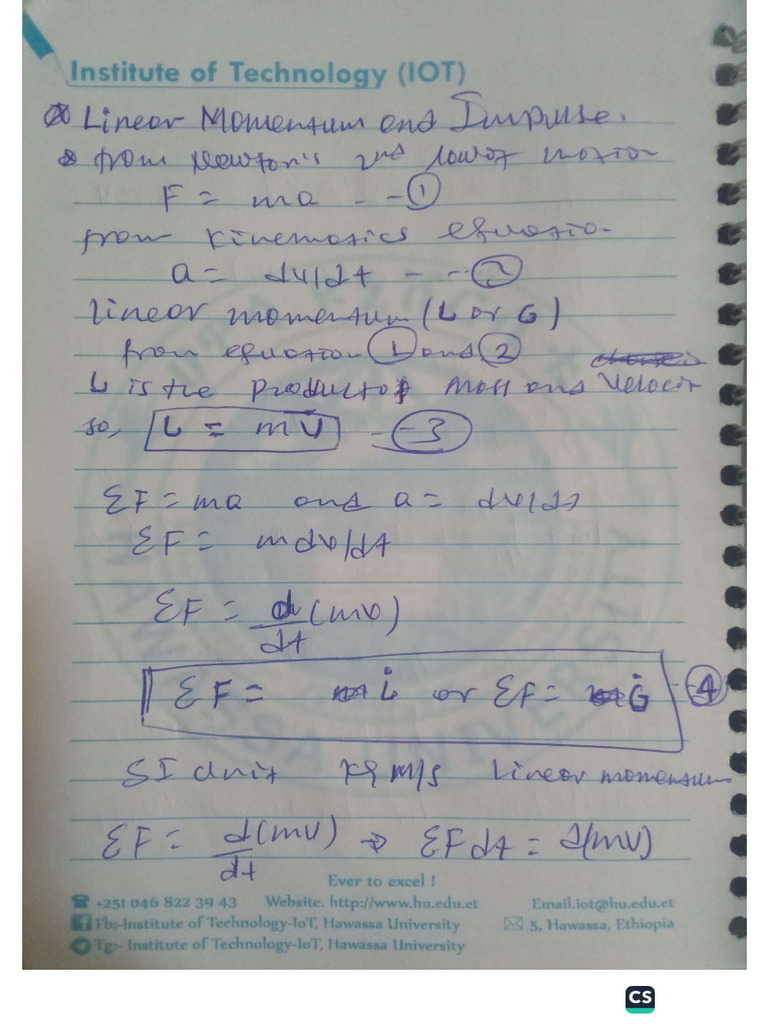 Institute of Technology (IOT)
Linear Momentum and Impulse.
from Newton's 2nd law of motion
F = ma - - ①
from kinematics equatio-
a = dv/dt - - - ②
linear momentum (L or G)
from equation ① and ②
L is the product of mass and velocit
so, L = mV - - ③
ΣF = ma and a = dv/dt
ΣF = mdv/dt
ΣF = d/dt (mv)
ΣF = L̇ or ΣF = Ġ ④
SI unit kg m/s Linear momentum
ΣF = d(mv)/dt ⇒ ΣFdt = d(mv)
Ever to excel !
+251 046 822 39 43 Website. http://www.hu.edu.et Email.iot@hu.edu.et
Fb:-Institute of Technology-IoT, Hawassa University 5, Hawassa, Ethiopia
Tg:- Institute of Technology-IoT, Hawassa University
HAWASSA UNIVERSITY
CS